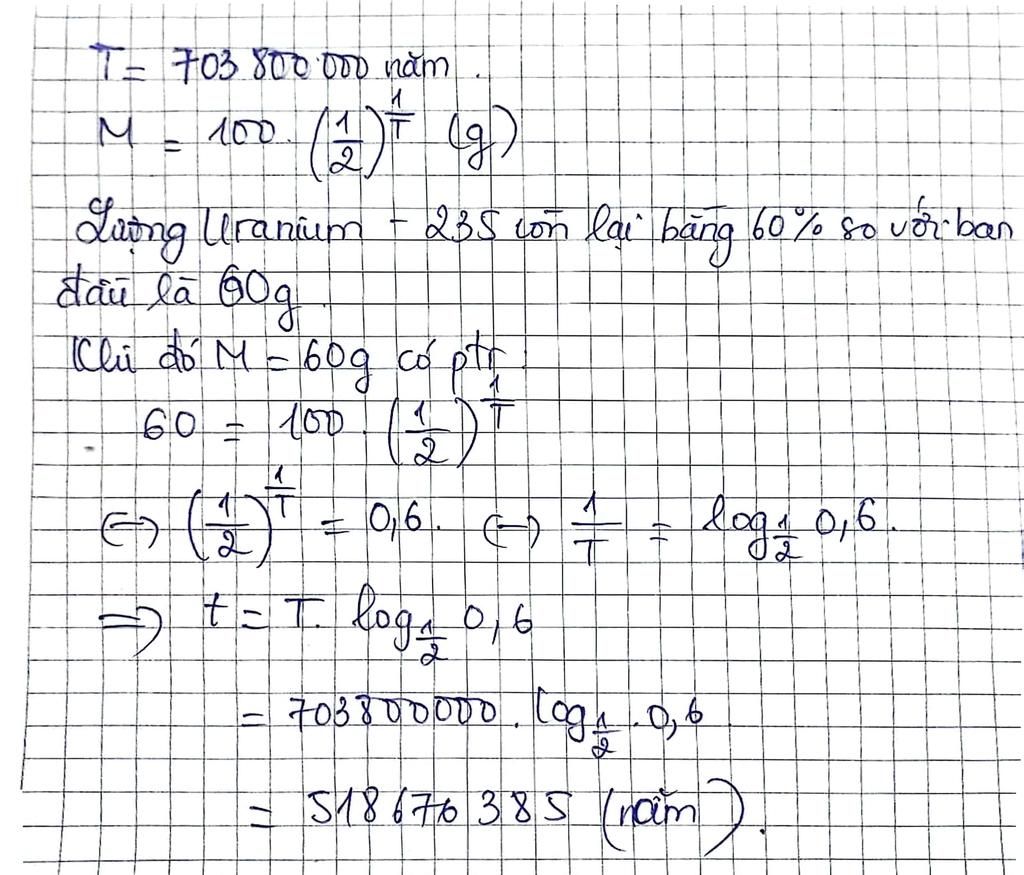 T = 703 800 000 năm.
M = 100. (1/2)^(1/T) (g)
Lượng Uranium - 235 còn lại bằng 60% so với ban
đầu là 60g
Khi đó M = 60g có ptr
60 = 100. (1/2)^(1/T)
⇔ (1/2)^(1/T) = 0,6. ⇔ 1/T = log_(1/2) 0,6.
⇒ t = T. log_(1/2) 0,6
= 703800000. log_(1/2) . 0,6
= 518676385 (năm).